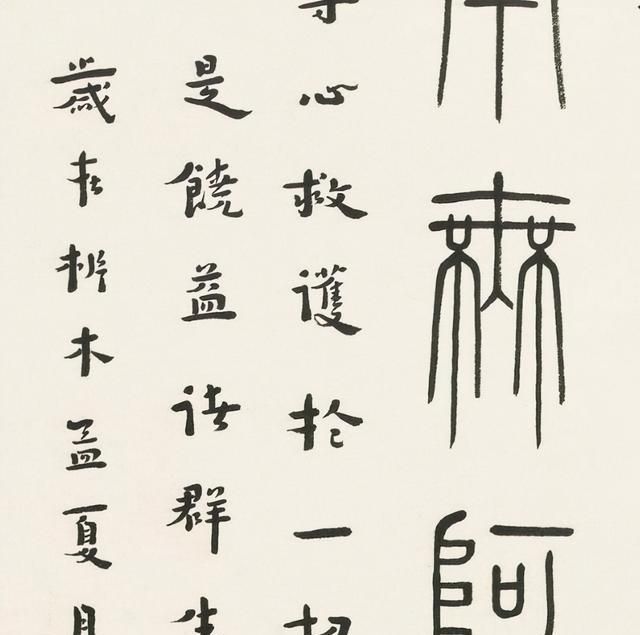 無阿
心救護於一切
是饒益諸群生
歲在析木孟夏月